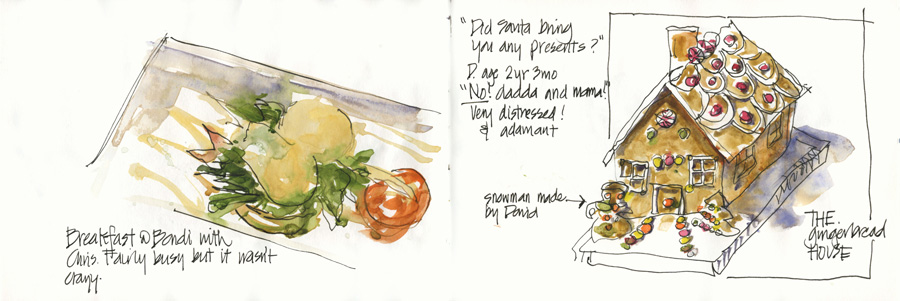 Breakfast @ Bondi with
Chris. Fairly busy but it wasn't
crazy.
"Did Santa bring
you any presents?"
D. age 2yr 3mo
"No! dadda and mama!"
Very distressed!
& adamant
snowman made
by David
THE
gingerbread
HOUSE